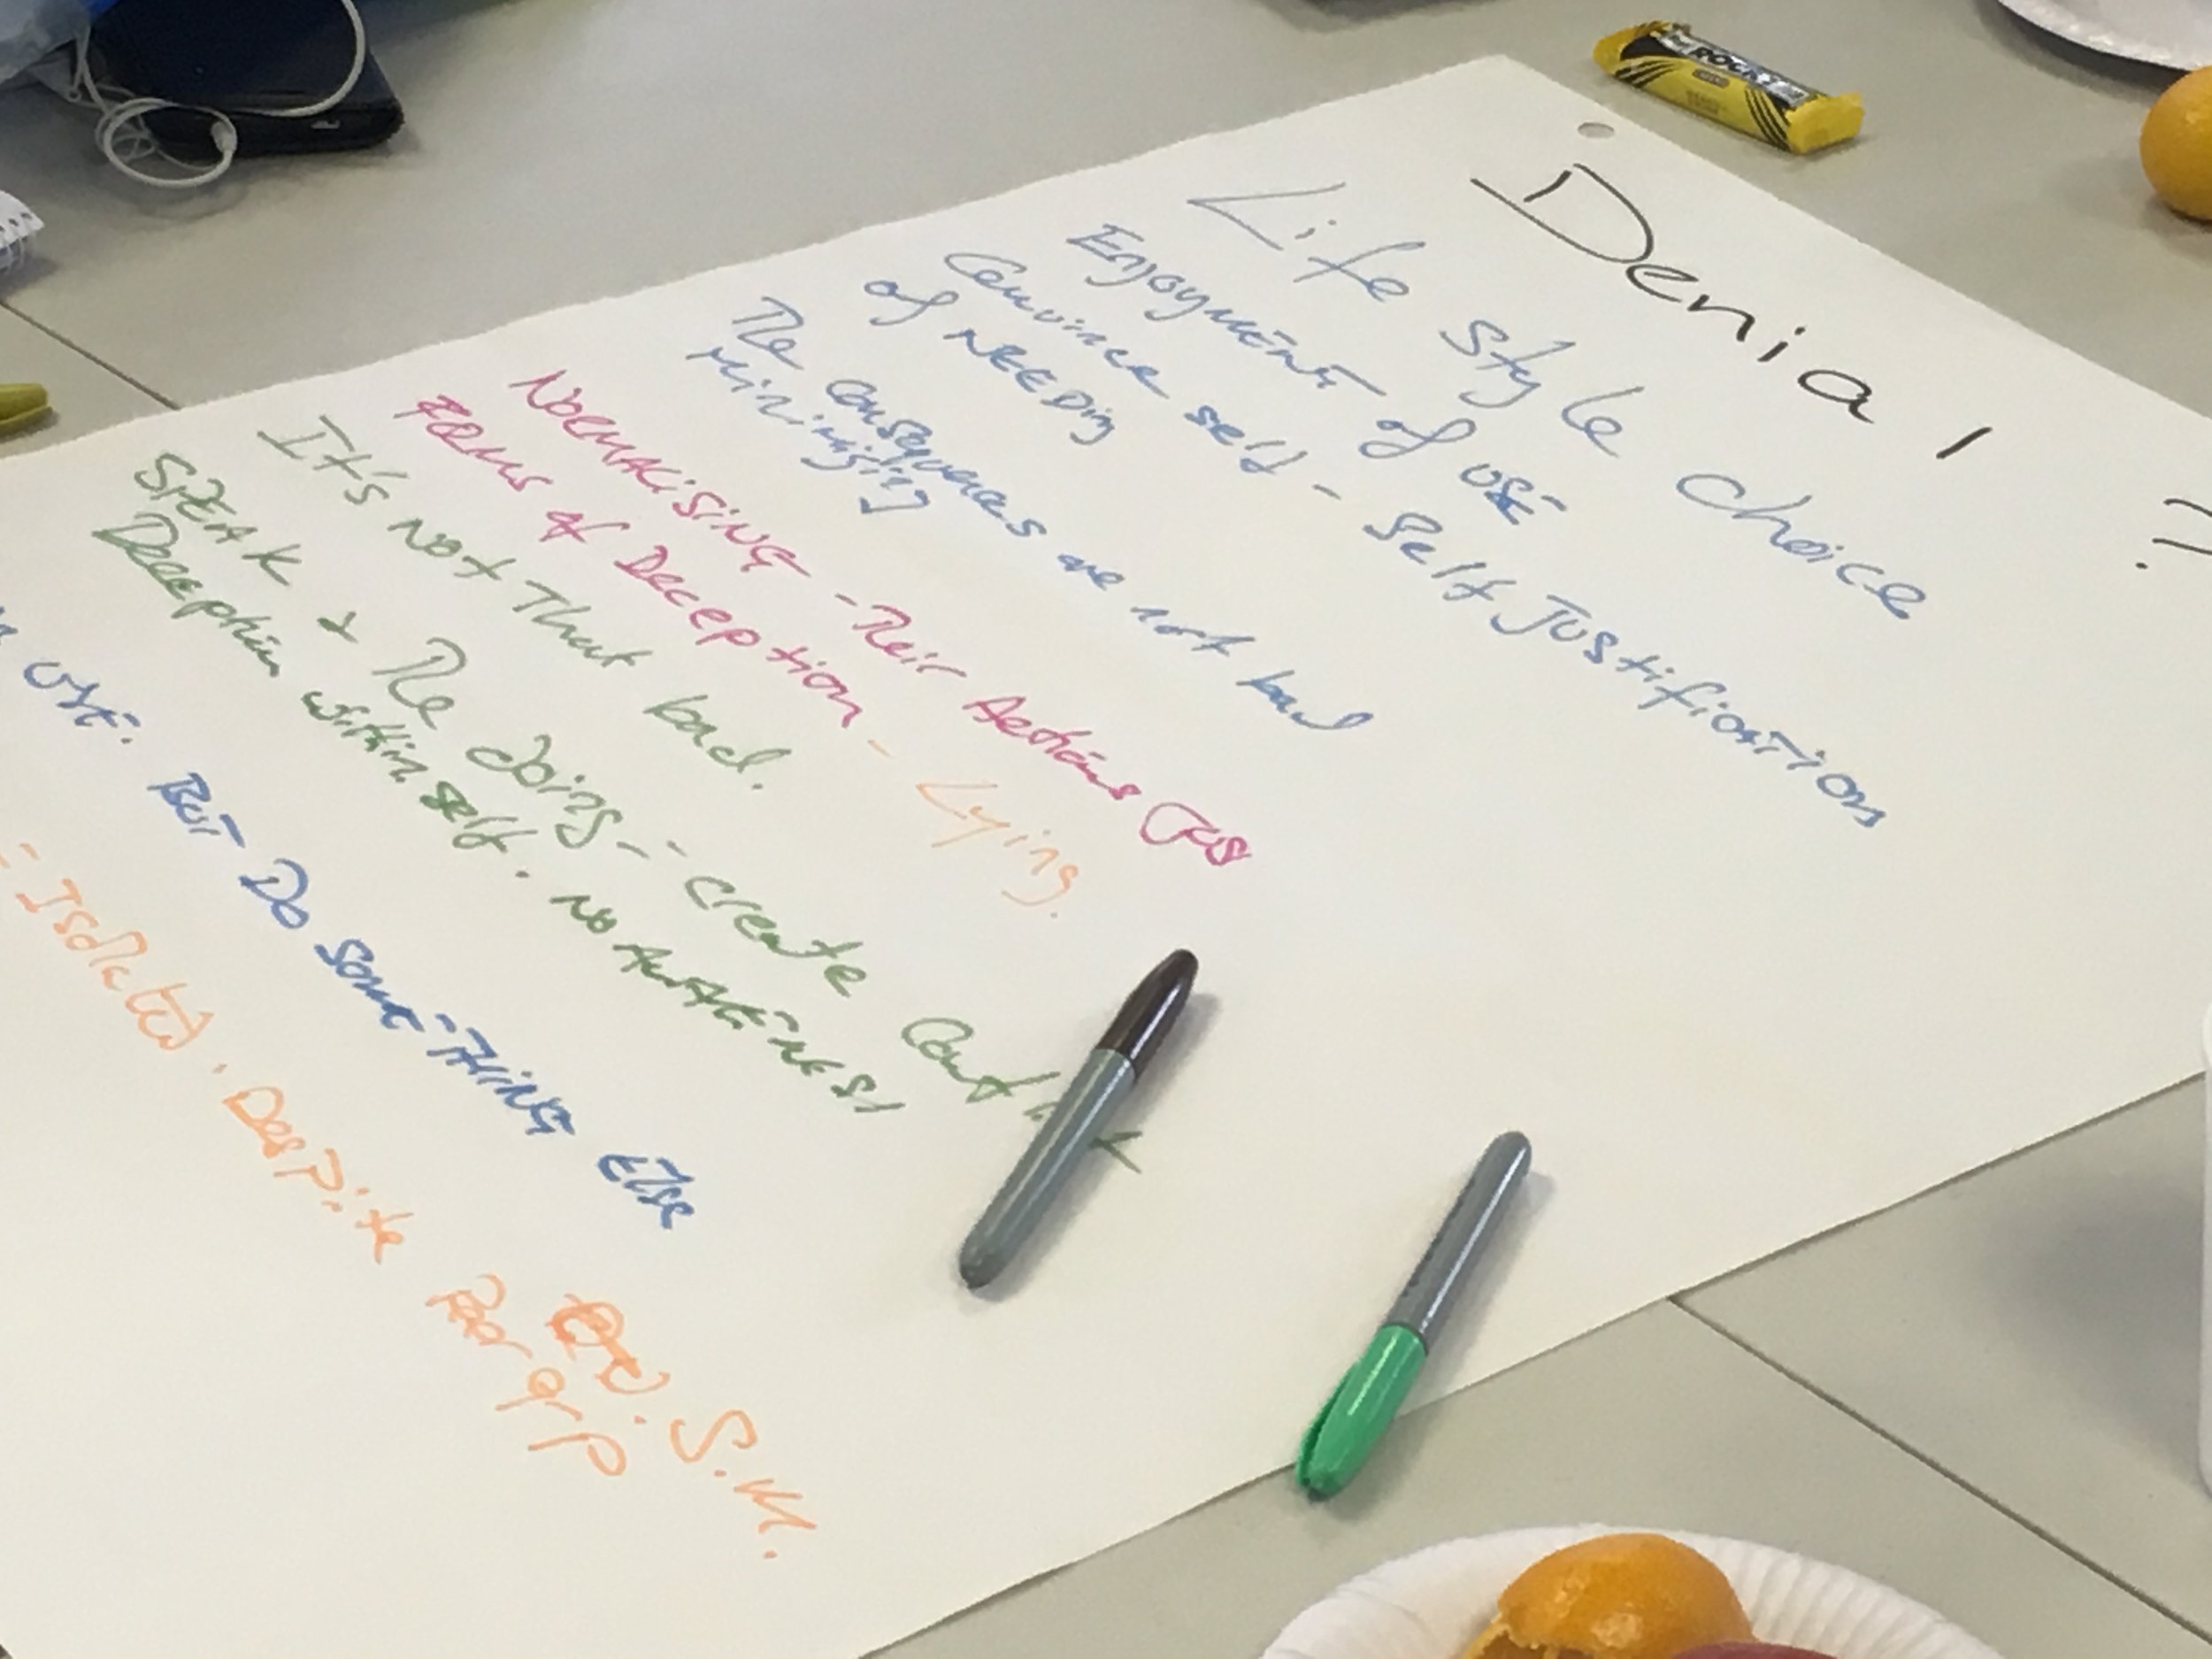 Denial ?
Life style choice
Enjoyment of use
Convince self - Self Justification
of NEEDing
The consequences are not bad
Minimizing
NORMALISING - Their Actions
FORMS of Deception - Lying.
It's not That bad.
SPEAK & The doing - create
Deception within self. No
use. But Do Something Else
- Isolated. Despite
Poor grp
S.M.
ROCKY